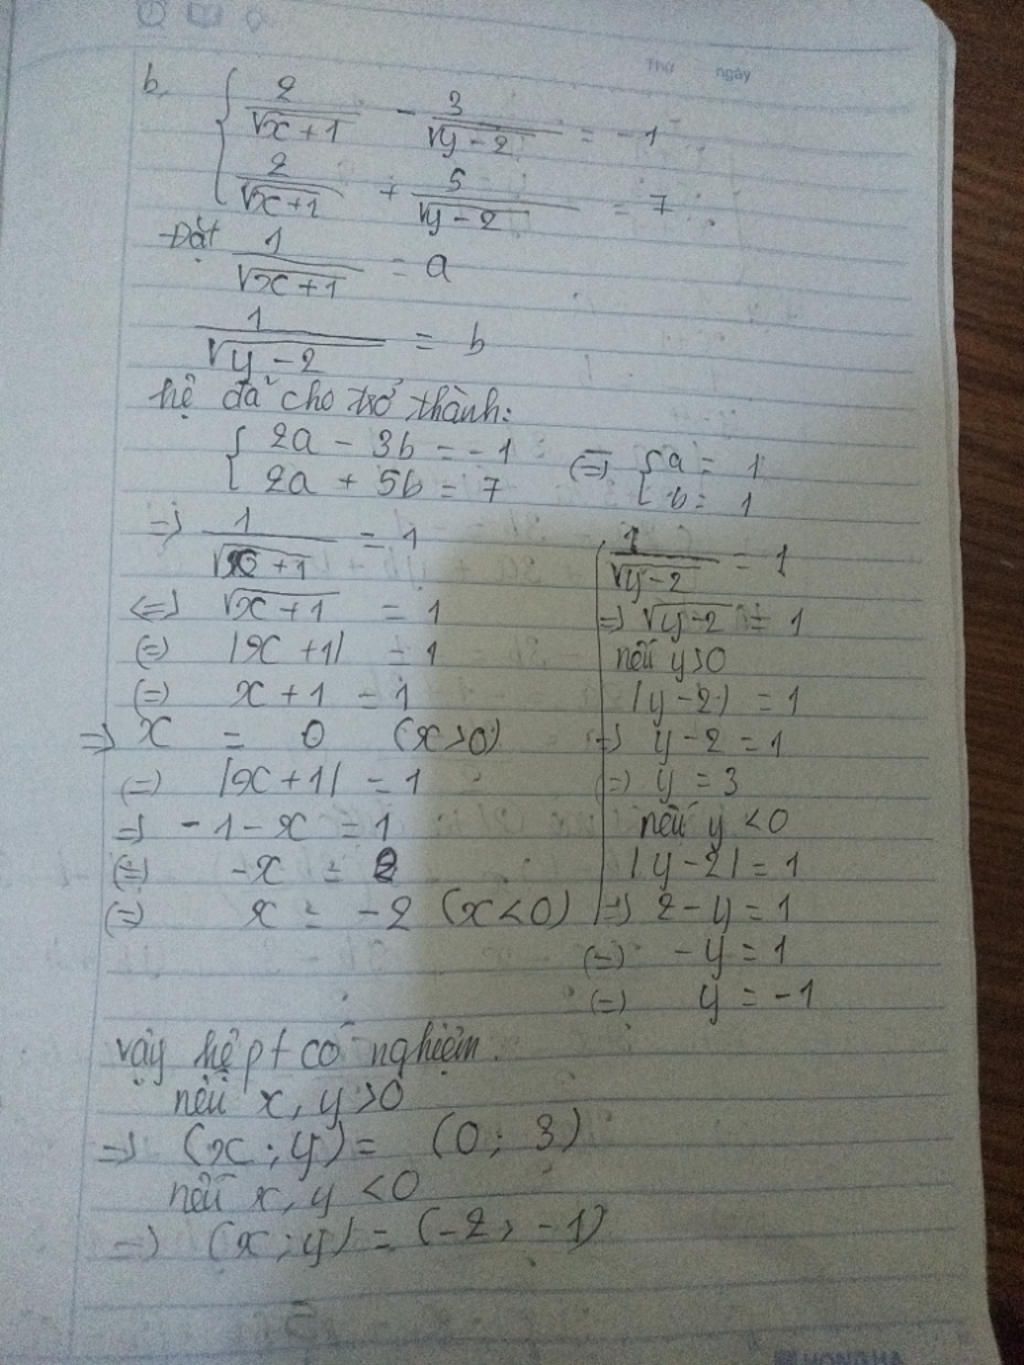 Thứ ngày
b, { 2/√x+1 - 3/√y-2 = -1
2/√x+1 + 5/√y-2 = 7
Đặt 1/√x+1 = a
1/√y-2 = b
hệ đã cho trở thành:
{ 2a - 3b = -1
2a + 5b = 7 (=) { a = 1
b = 1
=) 1/√x+1 = 1
<=) √x+1 = 1
(=) |x+1| = 1
(=) x+1 = 1
=) x = 0 (x>0)
(=) |x+1| = 1
=) -1-x = 1
(=) -x = 2
(=) x = -2 (x<0)
1/√y-2 = 1
=) √y-2 = 1
nếu y>0
|y-2| = 1
=) y-2 = 1
(=) y = 3
nếu y <0
|y-2| = 1
=) 2-y = 1
(=) -y = 1
(=) y = -1
vậy hệ pt có nghiệm.
nếu x, y >0
=) (x;y) = (0; 3)
nếu x, y <0
=) (x;y) = (-2; -1)